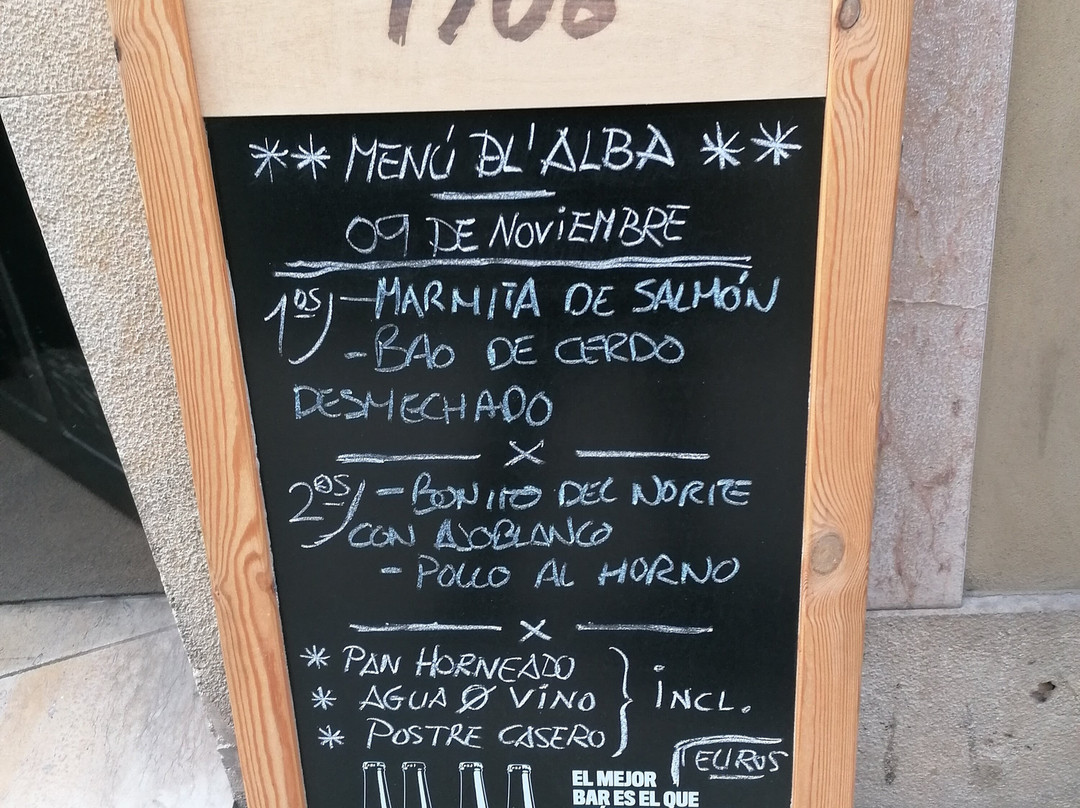 ** MENÚ DL'ALBA **
09 DE NOVIEMBRE
1os) - MARMITA DE SALMÓN
- BAO DE CERDO
DESMECHADO
x
2os) - BONITO DEL NORTE
CON AJOBLANCO
- POLLO AL HORNO
x
* PAN HORNEADO
* AGUA O VINO } INCL.
* POSTRE CASERO
EUROS
EL MEJOR
BAR ES EL QUE